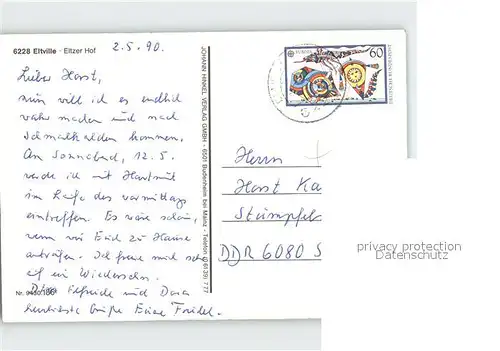 6228 Eltville - Eltzer Hof
2.5.90.
Lieber Horst,
nun will ich es endlich
wahr machen und nach
Schmalkalden kommen.
Am Sonnabend, 12.5.
werde ich mit Hartmut
im Laufe des Vormittags
eintreffen. Es wäre schön,
wenn wir Euch zu Hause
anträfen. Ich freue mich sehr
auf ein Wiedersehn.
Elfriede und Dora
herzlichste Grüße Eure Friedel.
Nr.
JOHANN HINKEL VERLAG GMBH - 6501 Budenheim bei Mainz - Telefon (06139) 777
EUROPA
60
DEUTSCHE BUNDESPOST
Herrn
Horst Ka
Stümpfel
DDR 6080 S
privacy protection
Datenschutz